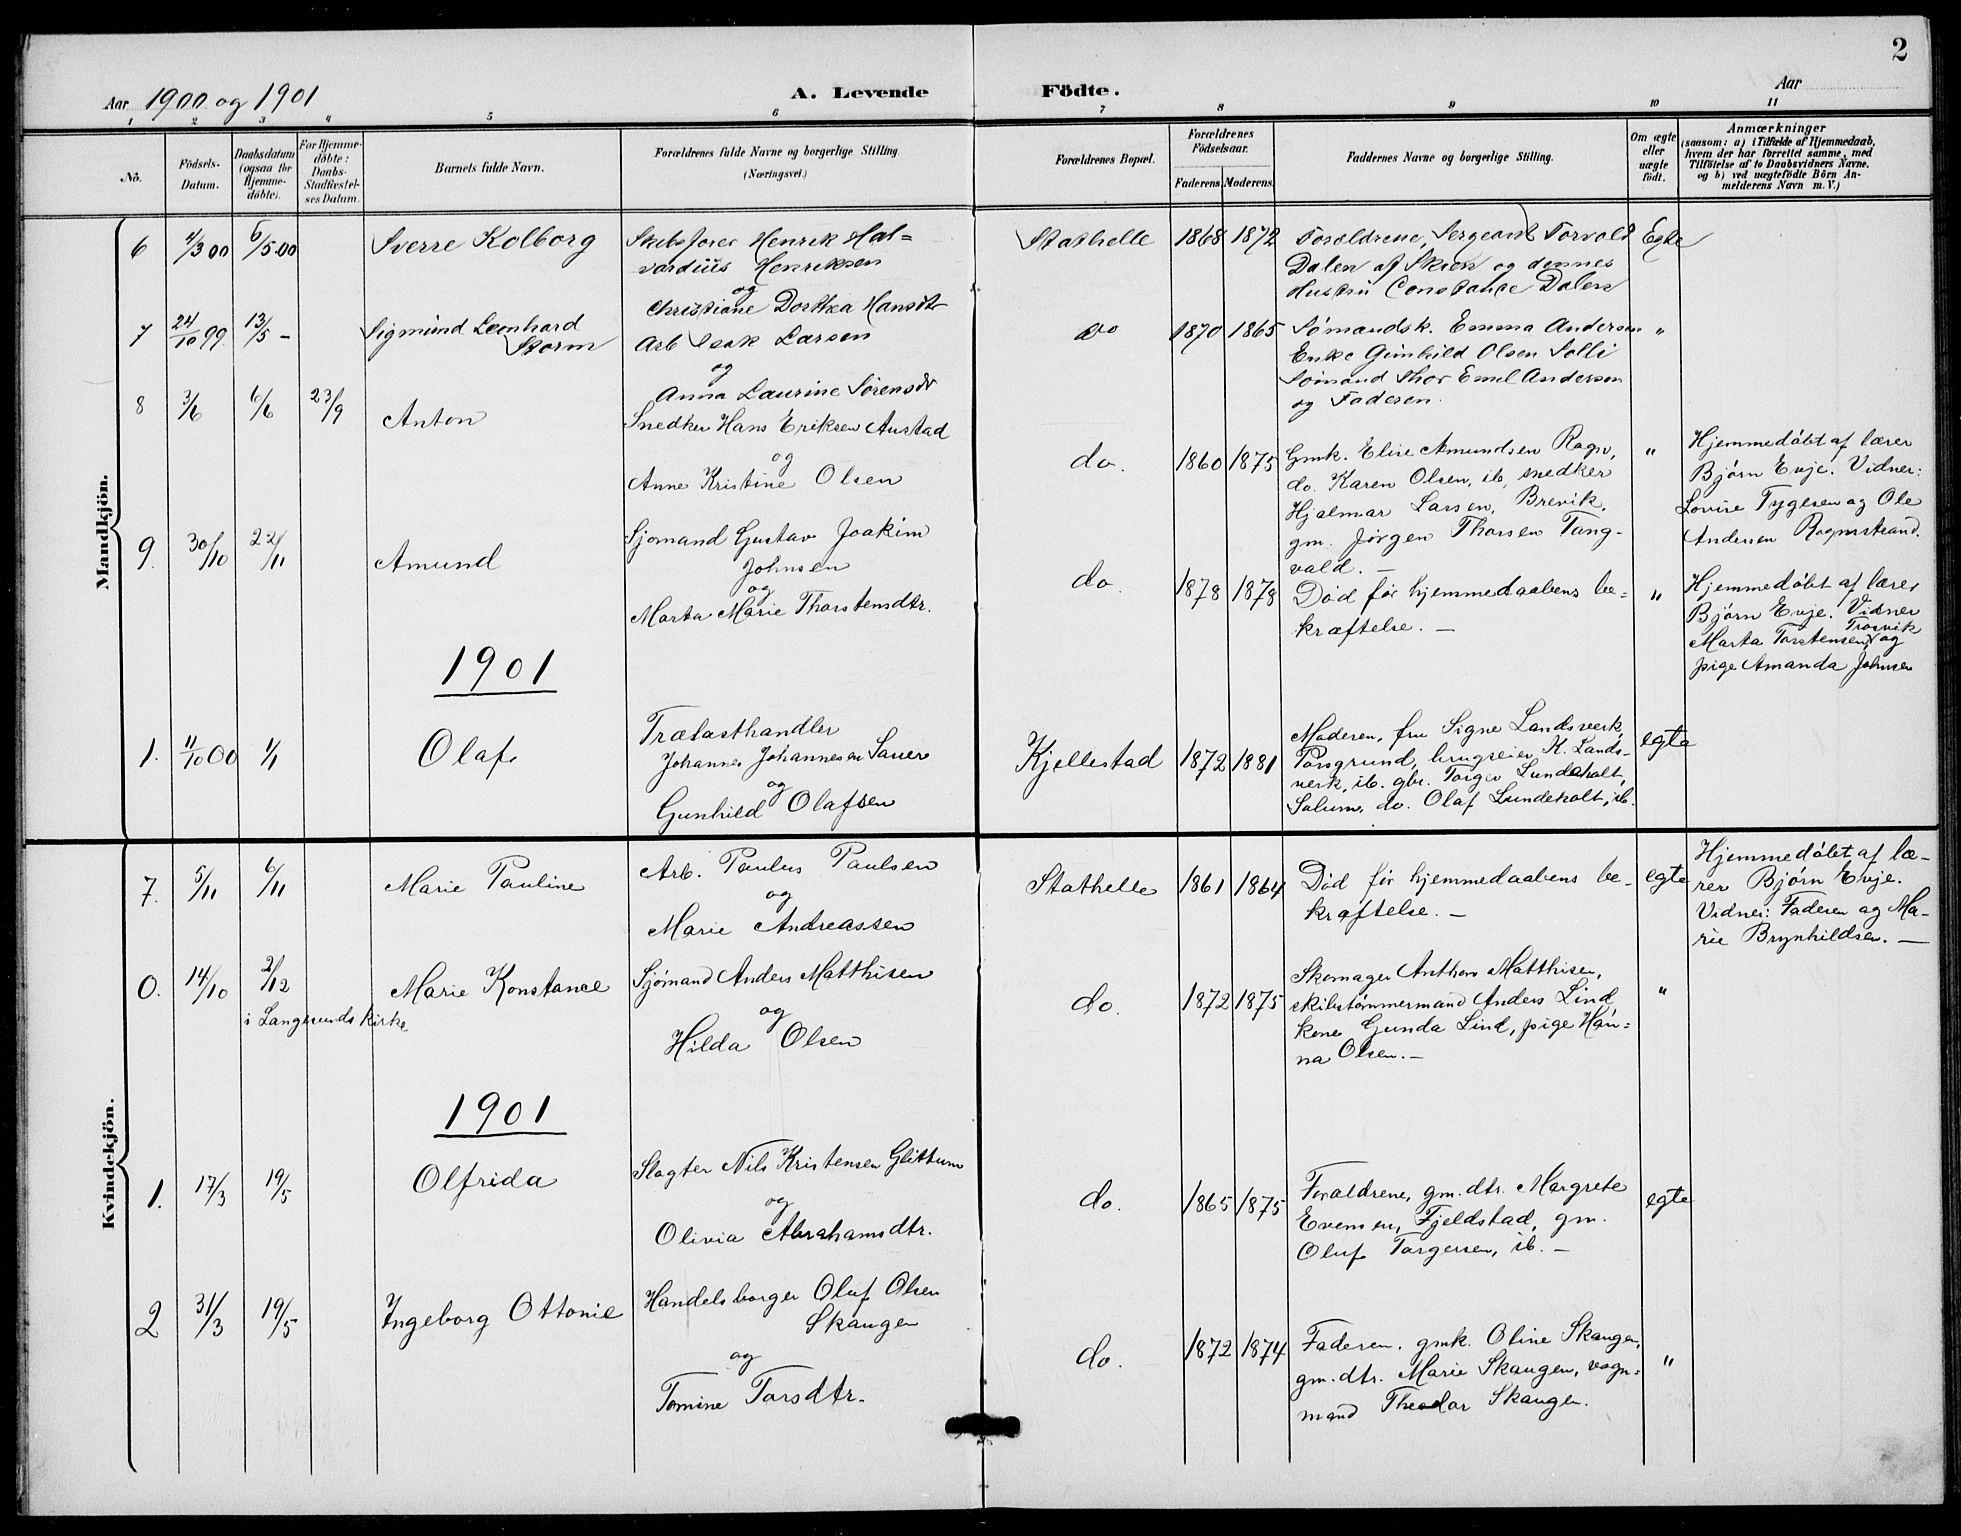 2
Aar 1900 og 1901
A. Levende Födte.
Aar
1 2 3 4 5 6 7 8 9 10 11
No.
Födsels-Datum.
Daabsdatum (ogsaa for Hjemme-döbte).
For Hjemme-döbte: Daabs-Stadfæstel-ses Datum.
Barnets fulde Navn.
Forældrenes fulde Navne og borgerlige Stilling.
(Næringsvei.)
Forældrenes Bopæl.
Forældrenes Födselsaar.
Faderens. Moderens.
Faddernes Navne og borgerlige Stilling.
Om ægte eller uægte födt.
Anmærkninger
(saasom: a) i Tilfælde af Hjemmedaab,
hvem der har forrettet samme, med
Tilföielse af to Daabsvidners Navne.
og b) ved uægtefödte Börn An-
melderens Navn m. V.)
Mandkjön.
6 4/3 00 6/5 00 Sverre Kolborg
Skibsfører Henrik Hal=
vardius Henriksen
og
Christiane Dorthea Hansdtr
Stathelle 1868 1872
Forældrene, Sergeant Torvald
Dalen af Skien og dennes
Hustru Constance Dalen
Egte
7 24/10 99 13/5 - Sigmund Leonhard
Storm
Arb Isak Larsen
og
Anna Laurine Sørensdtr
do 1870 1865
Sømandsk. Emma Andersen
Enke Gunhild Olsen Solli
Sømand Thor Emil Andersen
og Faderen.
"
8 3/6 6/6 23/9 Anton
Snedker Hans Eriksen Austad
og
Anne Kristine Olsen
do. 1860 1875
Gmk. Elise Amundsen Ragv,
do. Karen Olsen, ib, snedker
Hjalmar Larsen, Brevik,
gm. Jørgen Thorsen Tang-
vald. -
"
Hjemmedøbt af lærer
Bjørn Evje. Vidner:
Lovise Tygesen og Ole
Andersen Rognstrand.
9. 30/10 22/11 Amund
Sjømand Gustav Joakim
Johnsen
og
Marta Marie Thorstensdtr.
do. 1878 1878
Død før hjemmedaabens be-
kræftelse. -
"
Hjemmedøbt af lærer
Bjørn Evje. Vidner
Trosvik
Marta Torstensen og
pige Amanda Johnsen
1901
1. 11/10 00 1/1 Olaf
Trælasthandler
Johannes Johannesen Sauer
og
Gunhild Olafsen
Kjellestad 1872 1881
Moderen, fru Signe Landsverk,
Porsgrund, brugseier K. Lands-
verk, ib. gbr. Torger Lundeholt,
Solum, do. Olaf Lundeholt, ib.
egte
Kvindekjön.
7. 5/11 6/11 Marie Pauline
Arb. Paulus Paulsen
og
Marie Andreassen
Stathelle 1861 1864
Død før hjemmedaabens be-
kræftelse. -
egte
Hjemmedøbt af læ-
rer Bjørn Evje.
Vidner: Faderen og Ma-
rie Brynhildsen. -
0. 14/10 2/12 Marie Konstance
i Langesunds kirke
Sjømand Anders Matthisen
og
Hilda Olsen
do. 1872 1875
Skomager Anthon Matthisen,
skibstømmermand Anders Lind
kone Gunda Lind, pige Han=
na Olsen. -
"
1901
1. 17/3 19/5 Olfrida
Slagter Nils Kristensen Glittum
og
Olivia Abrahamsdtr.
do. 1865 1875
Forældrene, gm. dtr. Margrete
Evensen, Fjeldstad, gm.
Oluf Torgersen, ib. -
egte
2 31/3 19/5 Ingeborg Ottonie
Handelsborger Oluf Olsen
Skaugen
og
Tomine Torsdtr.
do. 1872 1874
Faderen, gmk. Oline Skaugen,
gm. dtr. Marie Skaugen, vogn=
mand Theodor Skaugen.
"